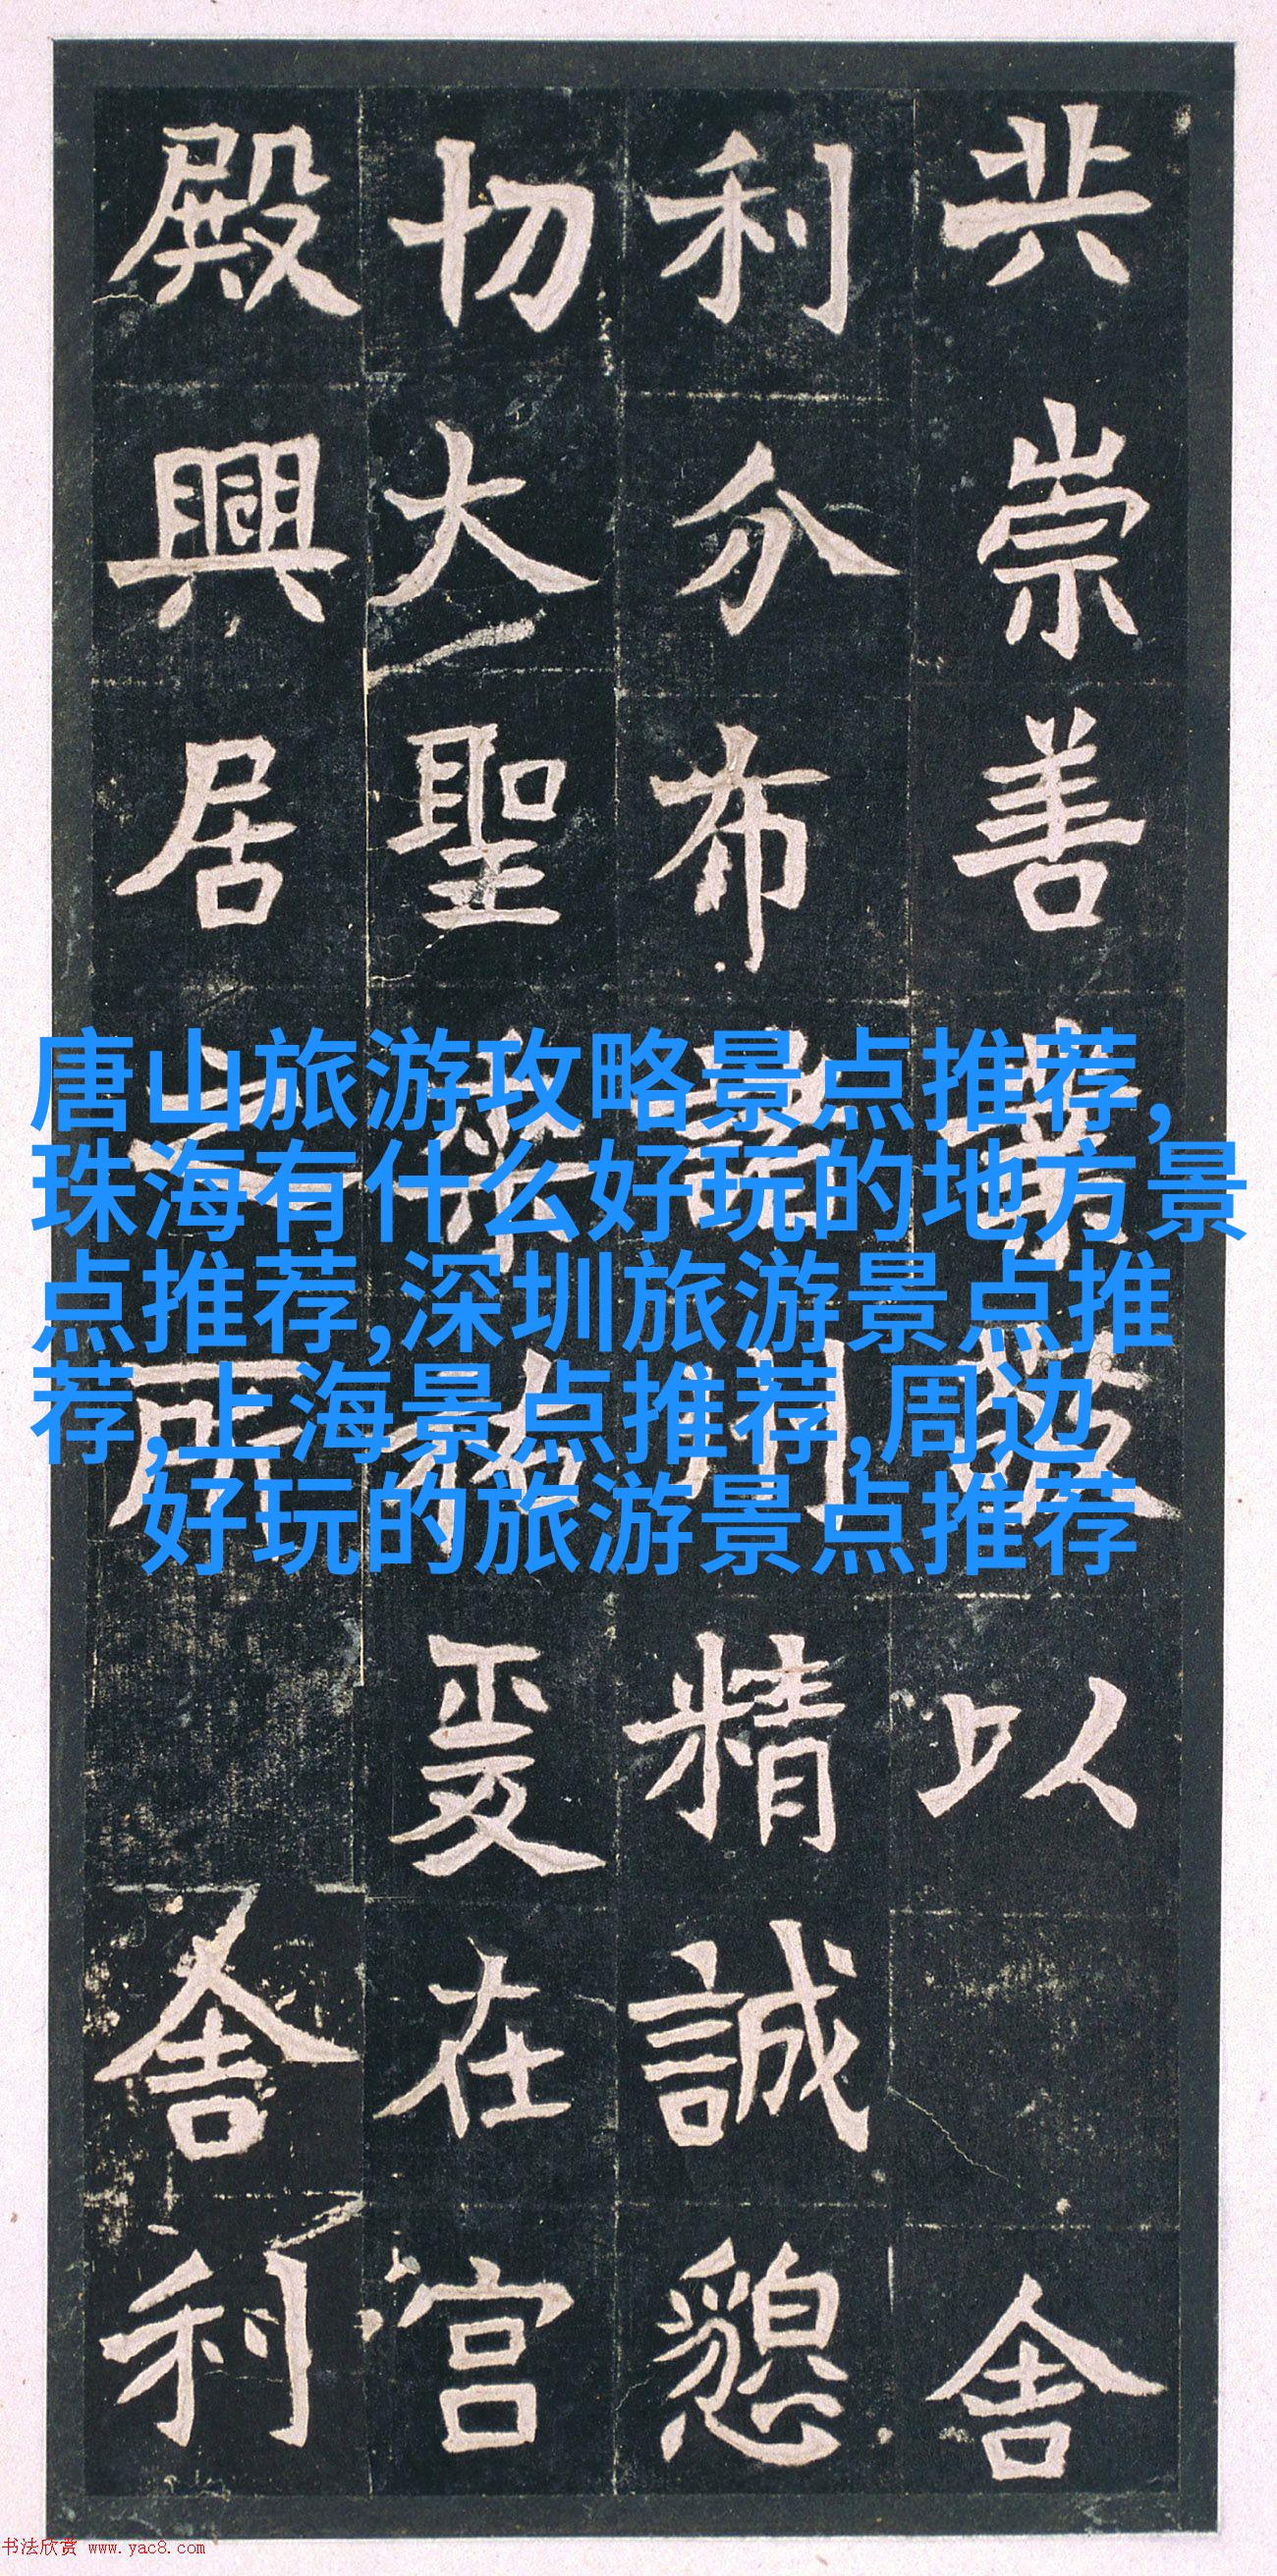 共崇善業以舍
利分布精誠懇
切大聖爰在宮
殿興居之所舍利
唐山旅游攻略景点推荐,
珠海有什么好玩的地方景
点推荐,深圳旅游景点推
荐,上海景点推荐,周边
好玩的旅游景点推荐
书法欣赏 www.yac8.com